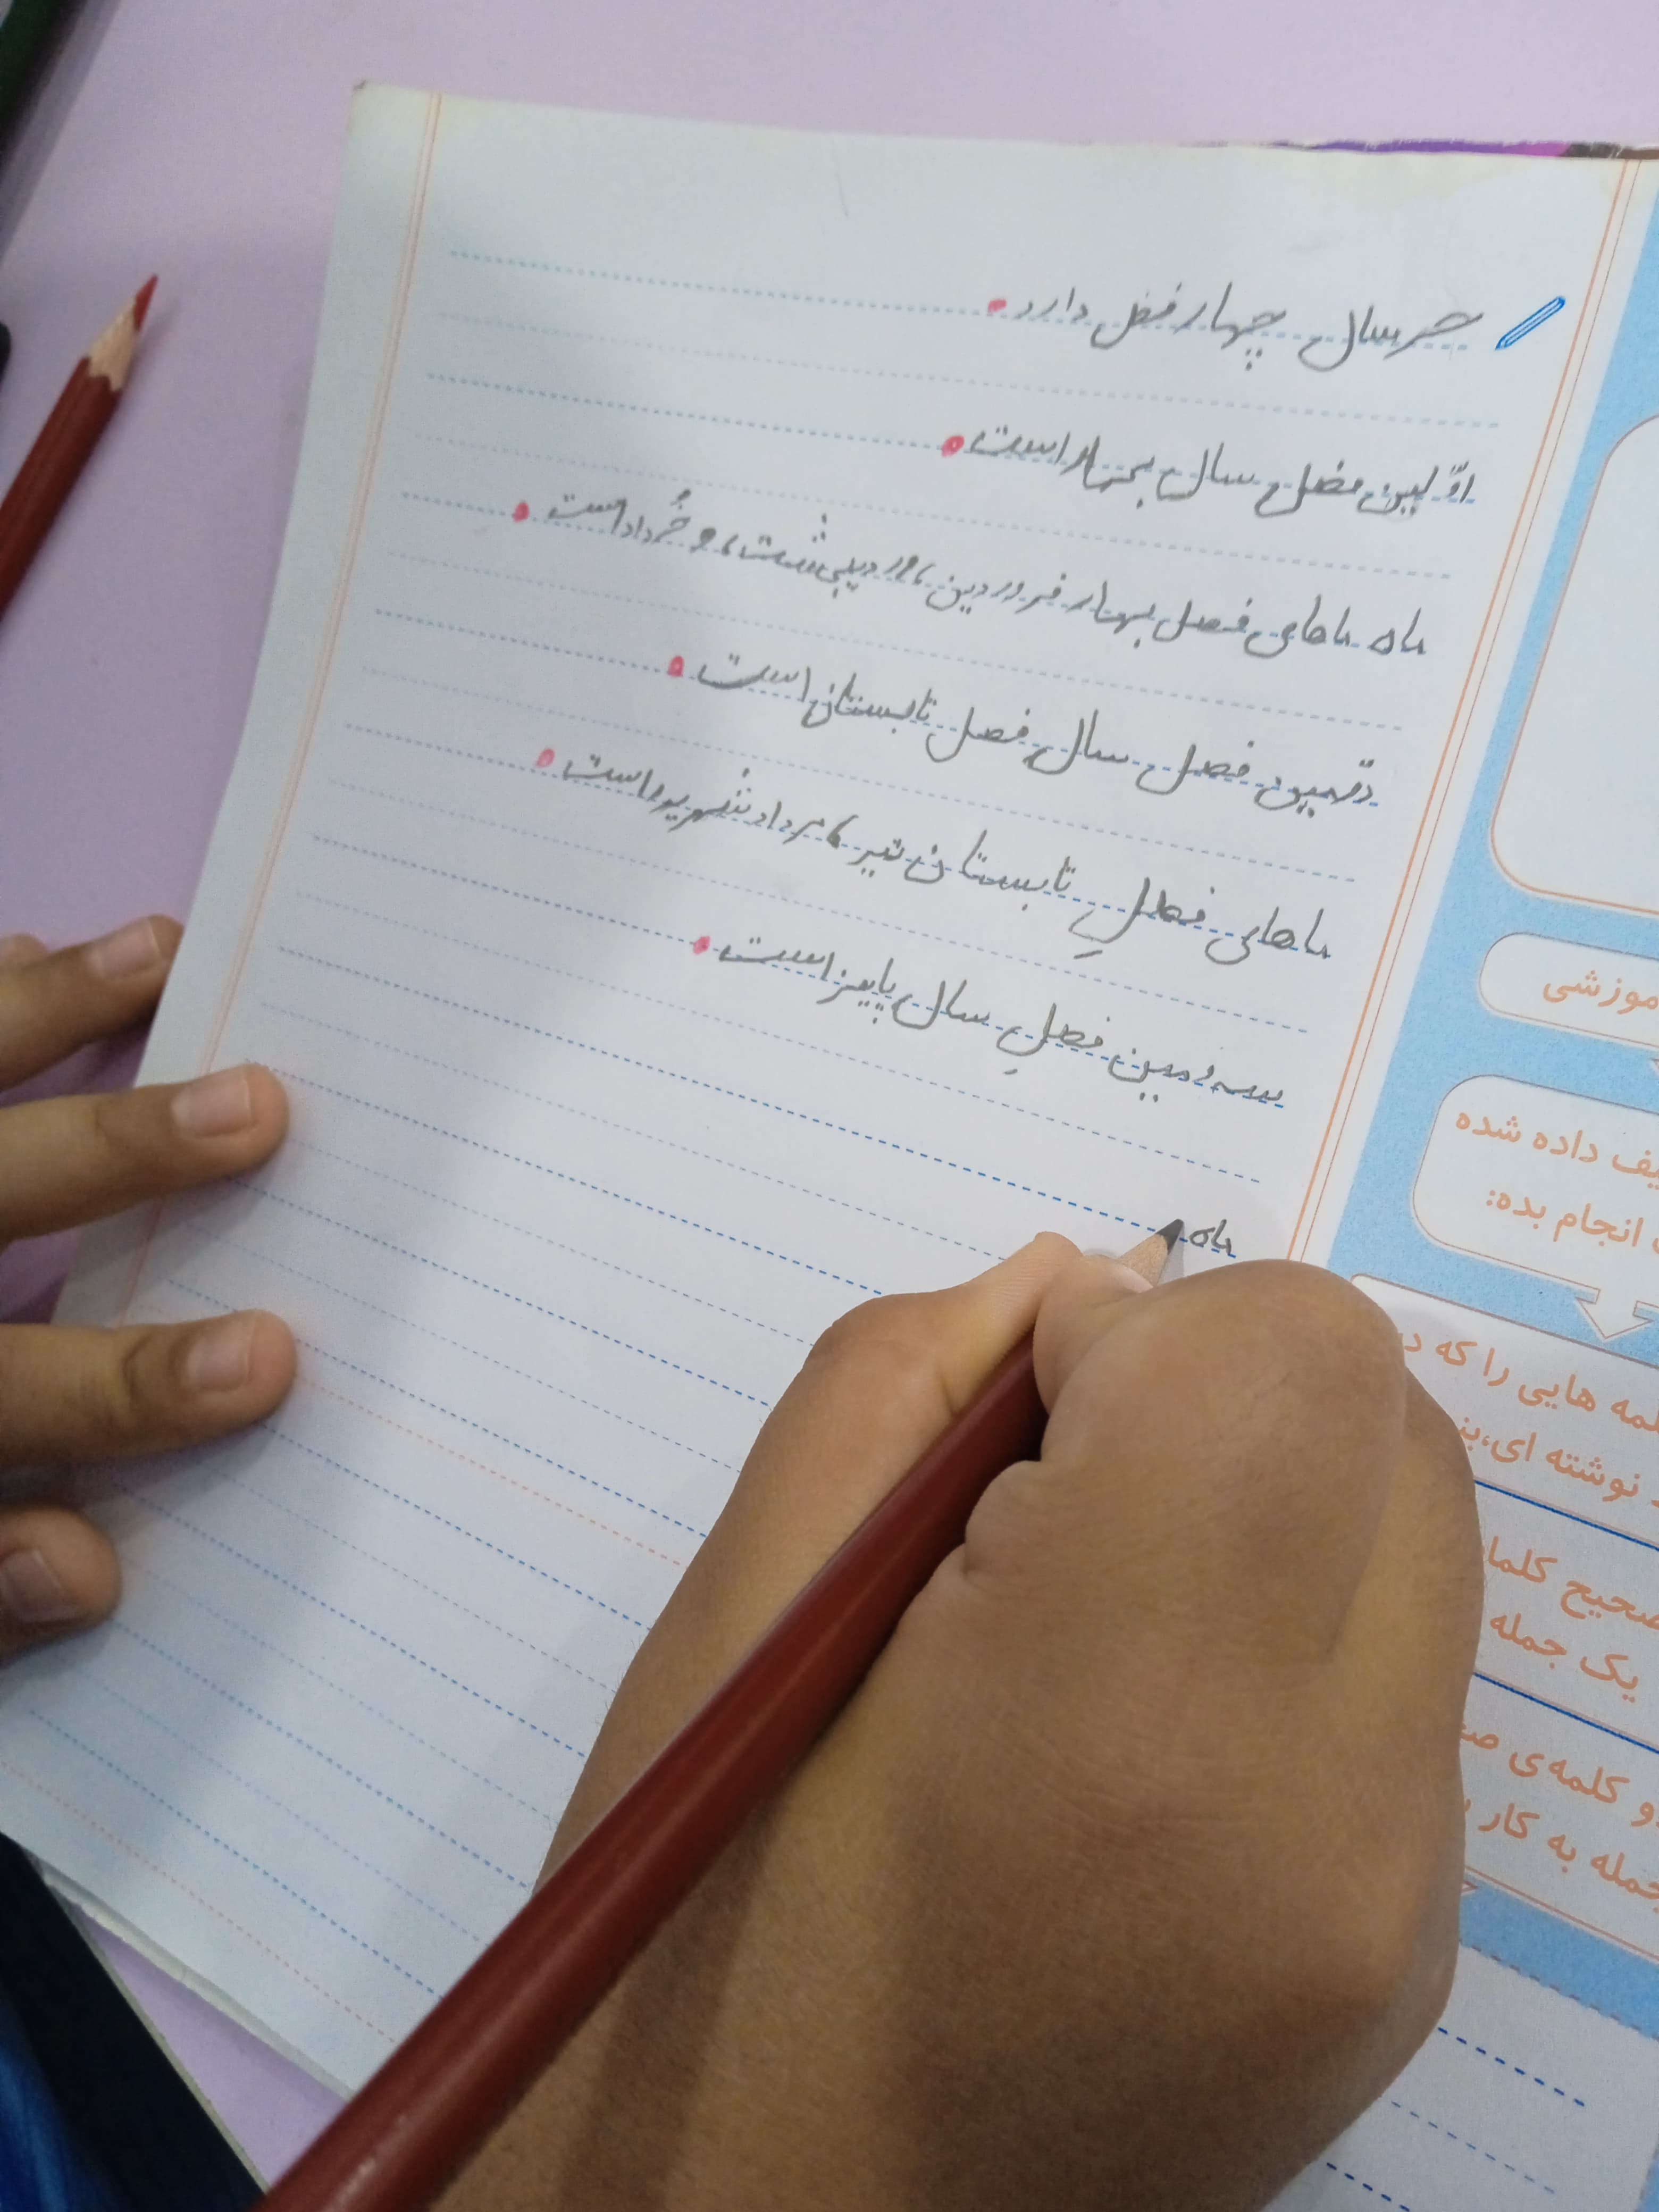 هر سال چهار فصل دارد.
اوّلین فصل سال بهار است.
ماه ماهای فصل بهار فروردین، اوردیبهشت، و خُرداد است.
فصل سال فصل تابستان است.
ماهای فصلِ تابستان تیر، مرداد شهریور است.
سه ومین فصلِ سال پاییز است.
ماه
موزشی
یف داده شده
انجام بده:
لمه هایی را که در
نوشته ای،بن
صحیح کلما
یک جمله
و کلمه‌ی
جمله به کار